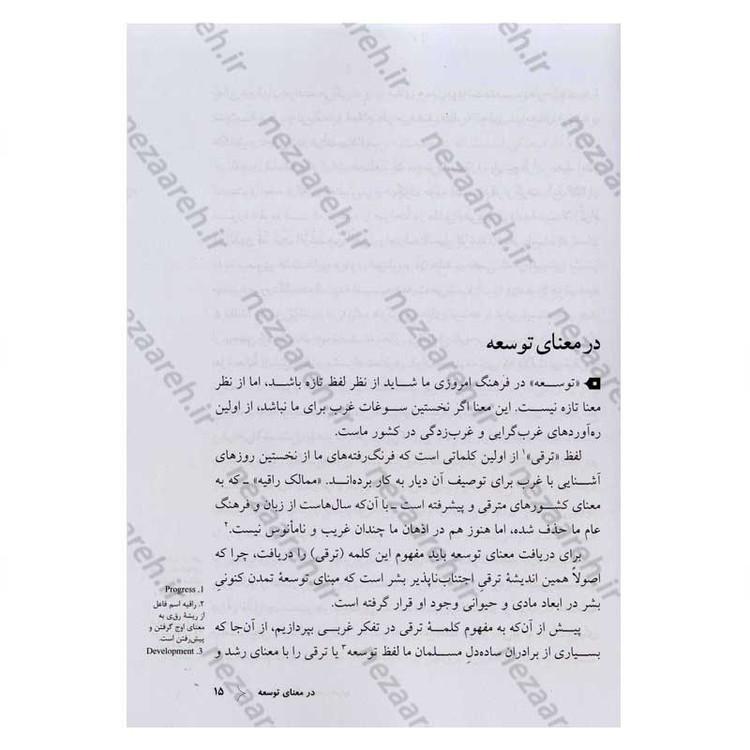 در معنای توسعه
«توسعه» در فرهنگ امروزی ما شاید از نظر لفظ تازه باشد، اما از نظر
معنا تازه نیست. این معنا اگر نخستین سوغات غرب برای ما نباشد، از اولین
ره‌آوردهای غرب‌گرایی و غرب‌زدگی در کشور ماست.
لفظ «ترقی»۱ از اولین کلماتی است که فرنگ‌رفته‌های ما از نخستین روزهای
آشنایی با غرب برای توصیف آن دیار به کار برده‌اند. «ممالک راقیه» ـ که به
معنای کشورهای مترقی و پیشرفته است ـ با آن‌که سال‌هاست از زبان و فرهنگ
عام ما حذف شده، اما هنوز هم در اذهان ما چندان غریب و نامأنوس نیست.۲
برای دریافت معنای توسعه باید مفهوم این کلمه (ترقی) را دریافت، چرا که
اصولاً همین اندیشهٔ ترقیِ اجتناب‌ناپذیر بشر است که مبنای توسعهٔ تمدن کنونیِ
بشر در ابعاد مادی و حیوانی وجود او قرار گرفته است.
پیش از آن‌که به مفهوم کلمهٔ ترقی در تفکر غربی بپردازیم، از آن‌جا که
بسیاری از برادران ساده‌دلِ مسلمان ما لفظ توسعه۳ یا ترقی را با معنای رشد و
1. Progress
۲. راقیه اسم فاعل
از ریشهٔ رقی به
معنای اوج گرفتن و
پیش‌رفتن است.
3. Development
در معنای توسعه ۱۵
nezaareh.ir
nezaareh.ir
nezaareh.ir
nezaareh.ir
nezaareh.ir
nezaareh.ir
nezaareh.ir
nezaareh.ir
nezaareh.ir